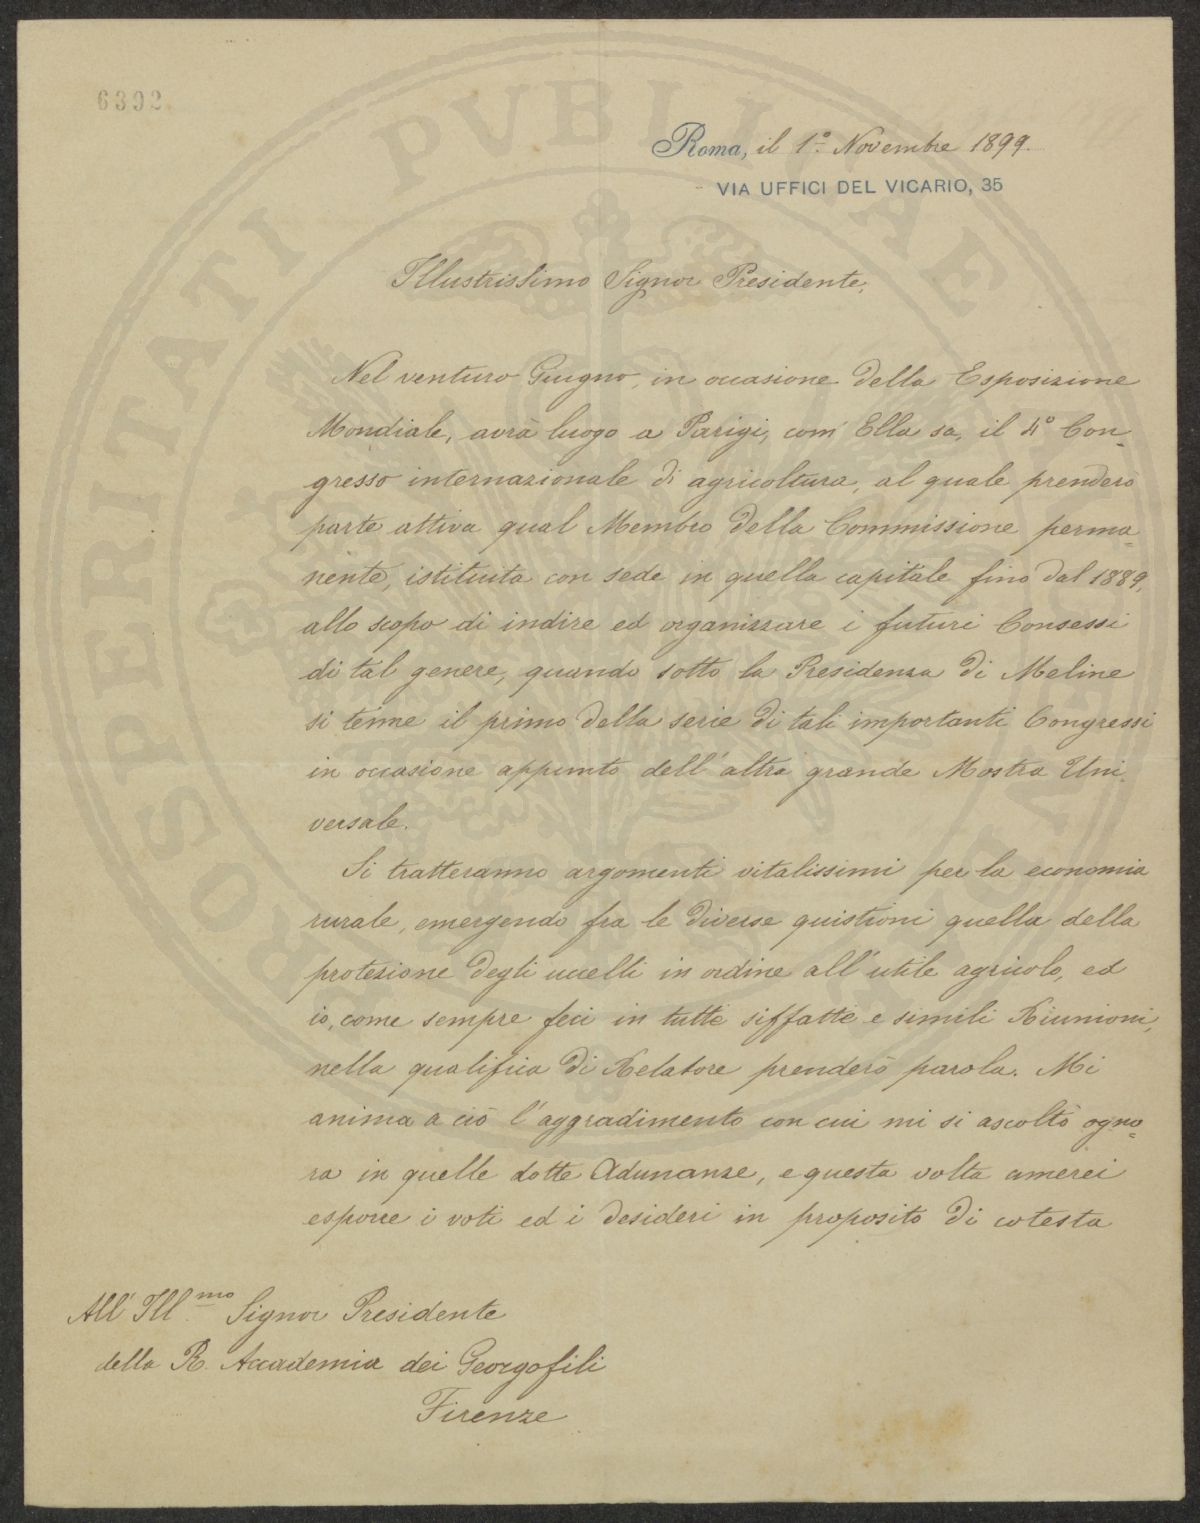 6392
PROSPERITATI PVBLICAE
Roma, il 1º Novembre 1899.
VIA UFFICI DEL VICARIO, 35
Illustrissimo Signor Presidente,
Nel venturo Giugno, in occasione della Esposizione
Mondiale, avrà luogo a Parigi, com' Ella sa, il 4º Con=
gresso internazionale di agricoltura, al quale prenderò
parte attiva qual Membro della Commissione perma=
nente, istituita con sede in quella capitale fino dal 1889,
allo scopo di indire ed organizzare i futuri Consessi
di tal genere, quando sotto la Presidenza di Meline
si tenne il primo della serie di tali importanti Congressi
in occasione appunto dell'altra grande Mostra Uni=
versale.
Si tratteranno argomenti vitalissimi per la economia
rurale, emergendo fra le diverse quistioni quella della
protezione degli uccelli in ordine all'utile agricolo, ed
io, come sempre feci in tutte siffatte e simili Riunioni,
nella qualifica di Relatore prenderò parola. Mi
anima a ciò l'aggradimento con cui mi si ascoltò ogno=
ra in quelle dotte Adunanze, e questa volta amerei
esporre i voti ed i desideri in proposito di cotesta
All' Ill.mo Signor Presidente
della R. Accademia dei Georgofili
Firenze